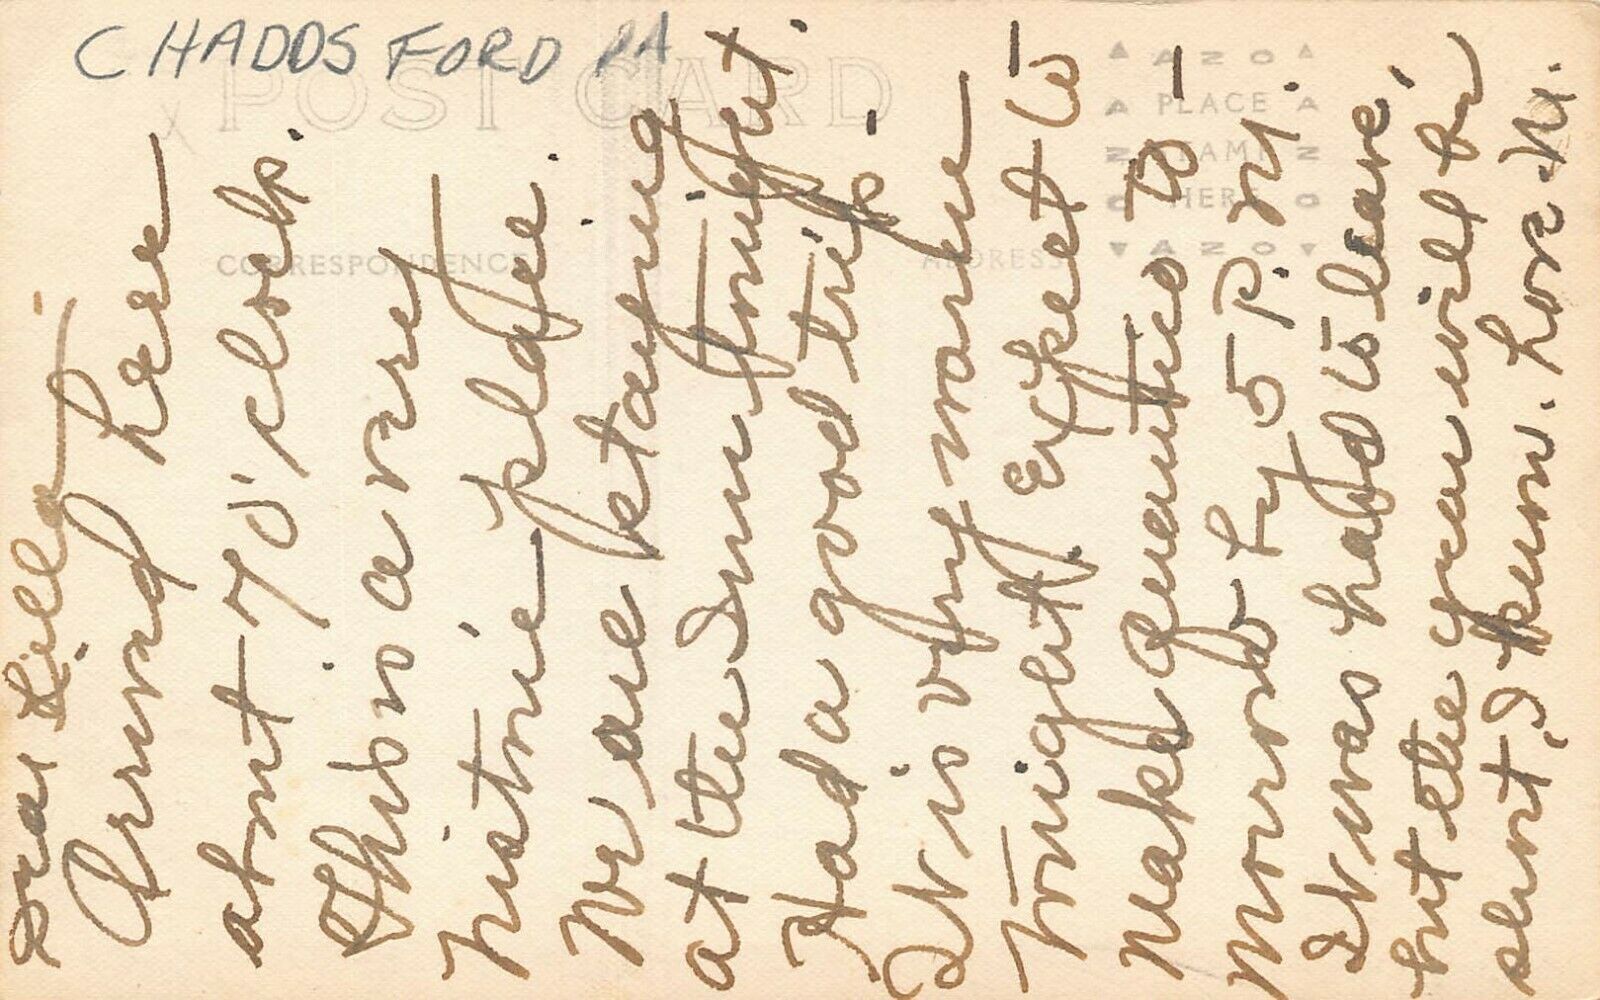 CHADDS FORD PA
POST CARD
CORRESPONDENCE
ADDRESS
AZO
PLACE
STAMP
HERE
AZO
Dear Lella -
Arrived here
about 7 O'clock.
This is a very
historic place.
We are staying
at the Inn tonight.
Had a good trip -
It is very warm
tonight. Expect to
make Quantico to-
morrow by 5 P.M.
It was hard to leave,
but the year will be
short, I know. Love M.